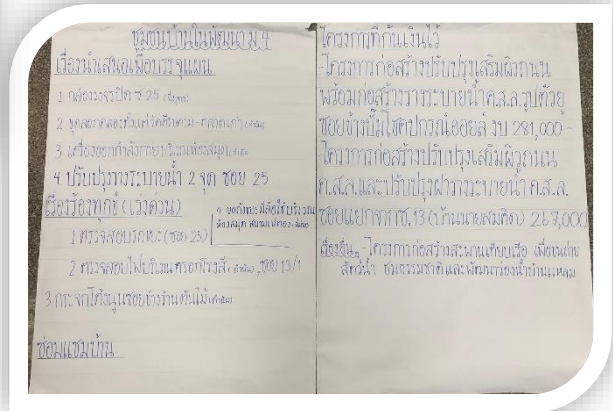 ชุมชนบ้านในพัฒนา ม.4
เรื่องนำเสนอเพื่อบรรจุแผน
1 กล้องวงจรปิด ซ 25
2 ขุดลอกคลองตั้งแต่วัด - ตลาดเก่า
3 เครื่องออกกำลังกาย บริเวณห้องสมุด
4 ปรับปรุงรางระบายน้ำ 2 จุด ซอย 25
เรื่องร้องทุกข์ (เร่งด่วน)
1 ตรวจสอบรถขยะ (ซอย 25)
2 ตรวจสอบไฟบริเวณ ตรอกโรงสี , ซอย 13/1
3 กระจกโค้งนูนซอยข้างร้านต้นไม้
ซ่อมแซมบ้าน
โครงการที่กันเงินไว้
-โครงการก่อสร้างปรับปรุงเสริมผิวถนน
พร้อมก่อสร้างรางระบายน้ำ ค.ส.ล. รูปตัวยู
ซอยข้างปั๊มโชคปกรณ์ออยล์ งบ 281,000-
โครงการก่อสร้างปรับปรุงเสริมผิวถนน
ค.ส.ล. และปรับปรุงฝารางระบายน้ำ ค.ส.ล.
ซอยแยกจาก ซ.13 (บ้านนายสมคิด) 267,000
เรื่องอื่นๆ -โครงการก่อสร้างสะพานเทียบเรือ เพื่อขนถ่าย
สัตว์น้ำ ชมธรรมชาติและพัฒนาร่องน้ำบ้านแหลม